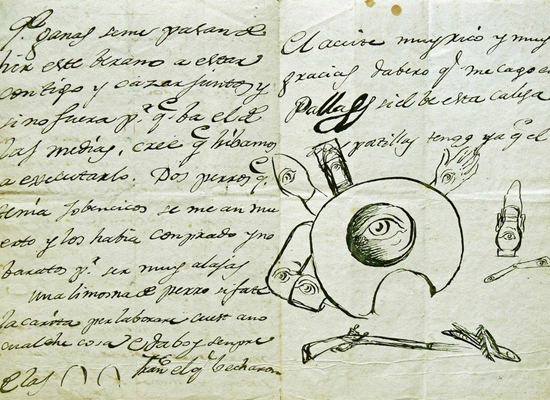 ganas se me pasan de
hir este berano a estar
contigo y cazar juntos y
si no fuera p.r q.e ba el de
las medias, cree q.e hibamos
a executarlo. Dos perros q.e
tenia jobencicos se me an mu
erto y los habia comprado y no
baratos p.r ser muy alajas
una limosna de perro si fate
la carita per laborare
cualche cosa
el q.e
e las
El aceite muy rico y muy
gracias, dabero q.e me cago en
si el
patillas tengo ya q.e el